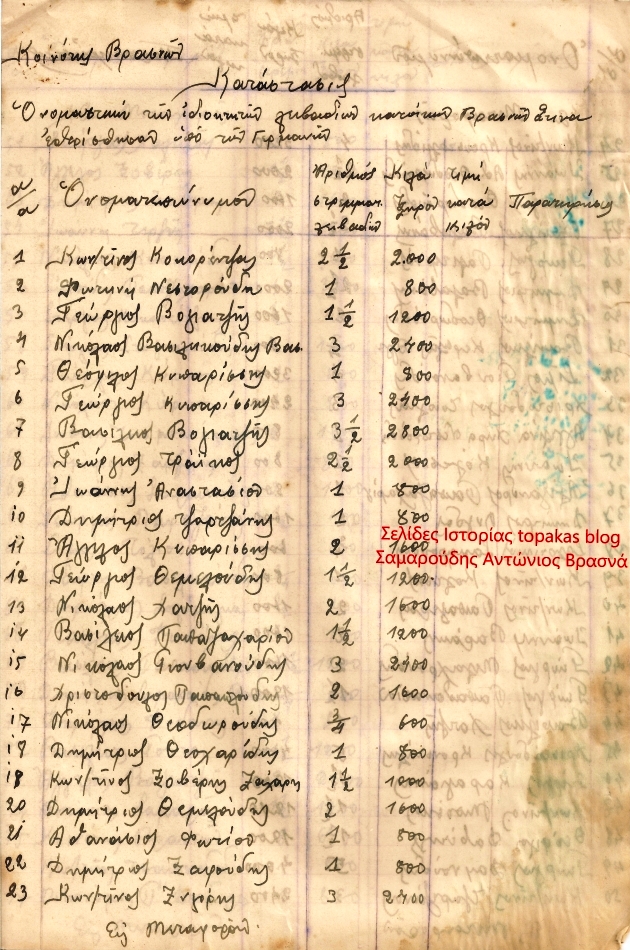 Κοινότης Βρασνῶν
Κατάστασις
Ὀνομαστική τῶν ἰδιοκτητῶν λειβαδιῶν κατοίκων Βρασνῶν ἅτινα
ἐθερίσθησαν ὑπό τῶν Γερμανῶν
α/α Ὀνοματεπώνυμον Ἀριθμός στρεμμάτ. λειβαδίων Κιλά ξηρόν τιμή κατά κιλόν Παρατηρήσεις
1 Κων/τῖνος Κοκορέντζας 2 1/2 2.000
2 Φωτεινή Νεστορούδη 1 800
3 Γεώργιος Βογιατζῆς 1 1/2 1200
4 Νικόλαος Βασιλικούδης Βασ. 3 2400
5 Θεόφιλος Κυπαρίσσης 1 800
6 Γεώργιος Κυπαρίσσης 3 2400
7 Βασίλειος Βογιατζῆς 3 1/2 2800
8 Γεώργιος Τράϊκος 2 1/2 2000
9 Ἰωάννης Ἀναστασίου 1 800
10 Δημήτριος Τζαρτζάνης 1 800
11 Ἄγγελος Κυπαρίσσης 2 1600
12 Γεώργιος Θεμελούδης 1 1/2 1200
13 Νικόλαος Χατζῆς 2 1600
14 Βασίλειος Παπαζαχαρίου 1 1/2 1200
15 Νικόλαος Γιοβανούδης 3 2400
16 Χριστόδουλος 2 1600
17 Νικόλαος Θεοδωρούδης 3/4 600
18 Δημήτριος Θεοχαρίδης 1 800
18 Κων/τῖνος Ζοβέρης Ζαχάρη 1 1/2 1000
20 Δημήτριος Θεμελούδης 2 1600
21 Ἀθανάσιος Φωτίου 1 800
22 Δημήτριος Σαρούδης 1 800
23 Κων/τῖνος 3 2400
Εἰς Μεταφοράν
Σελίδες Ιστορίας topakas blog
Σαμαρούδης Αντώνιος Βρασνά